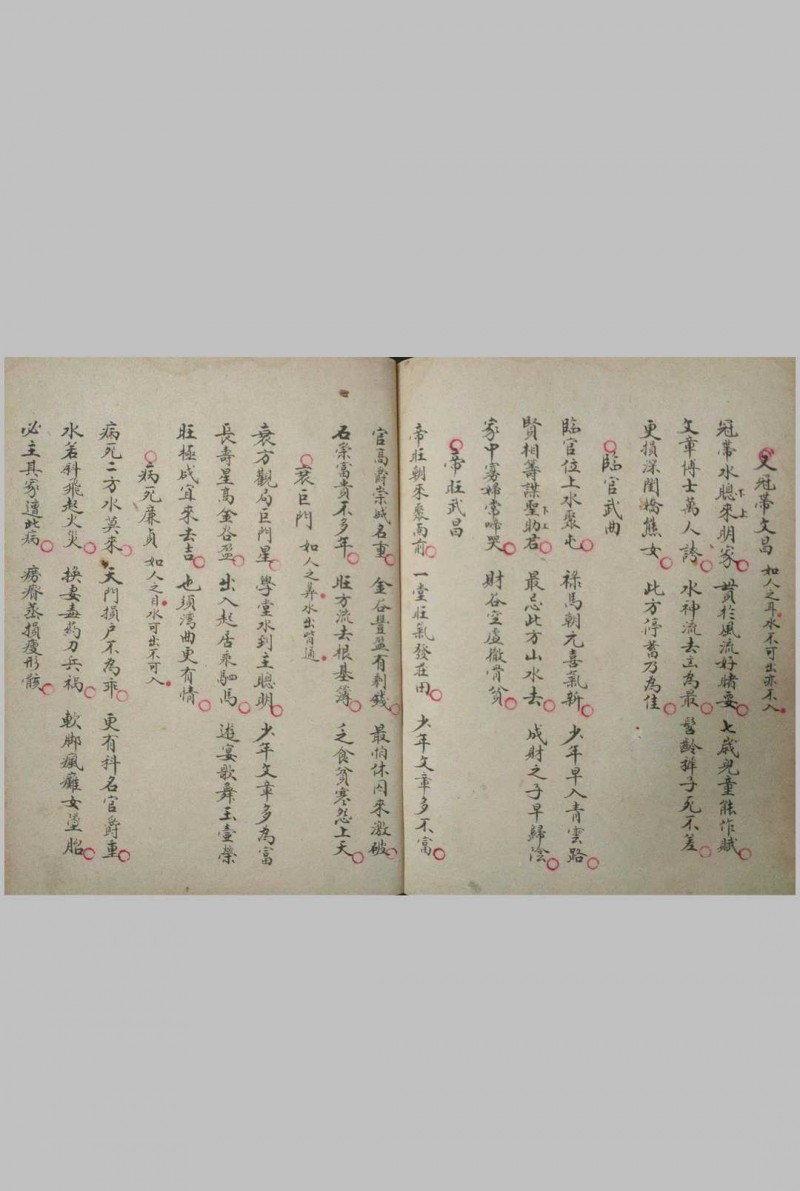 又冠帶文昌 如人之耳水不可出亦不入
冠帶水聰來明家 貰於風流好賭耍 七歲兒童能作賦
下 上
文章博士萬人誇 水神流去主為最 髫齡摔子死不差
更損深閨嬌態女 此方停蓄乃為佳
臨官武曲
臨官位上水聚屯 祿馬朝元喜氣新 少年早入青雲路
賢相籌謀聖助君 最忌此方山水去 成財之子早歸陰
下上
家中寡婦常啼哭 財谷空虛徹骨貧
帝旺武昌
帝旺朝來聚面前 一堂旺氣發莊田 少年文章多不富
官高爵崇城名重 金谷豐盈有剩錢 最怕休囚來激破
石崇富貴不多年 旺方流去根基薄 乏食貧寒怨上天
衰巨門 如人之鼻水出皆通
衰方觀局巨門星 學堂水到主聰明 少年文章多為富
長壽星高金谷盈 出入起居乘駟馬 遊宴歌舞玉壺榮
旺極成宜來去吉 也須灣曲更有情
病死廉貞 如人之目水可出不可入
病死二方水莫來 天門損戶不為乖 更有科名官爵重
水若斜飛起火災 換妻毒药刀兵禍 軟脚瘋癱女墮胎
必主其家遭此病 癆瘵蒸損瘦形骸